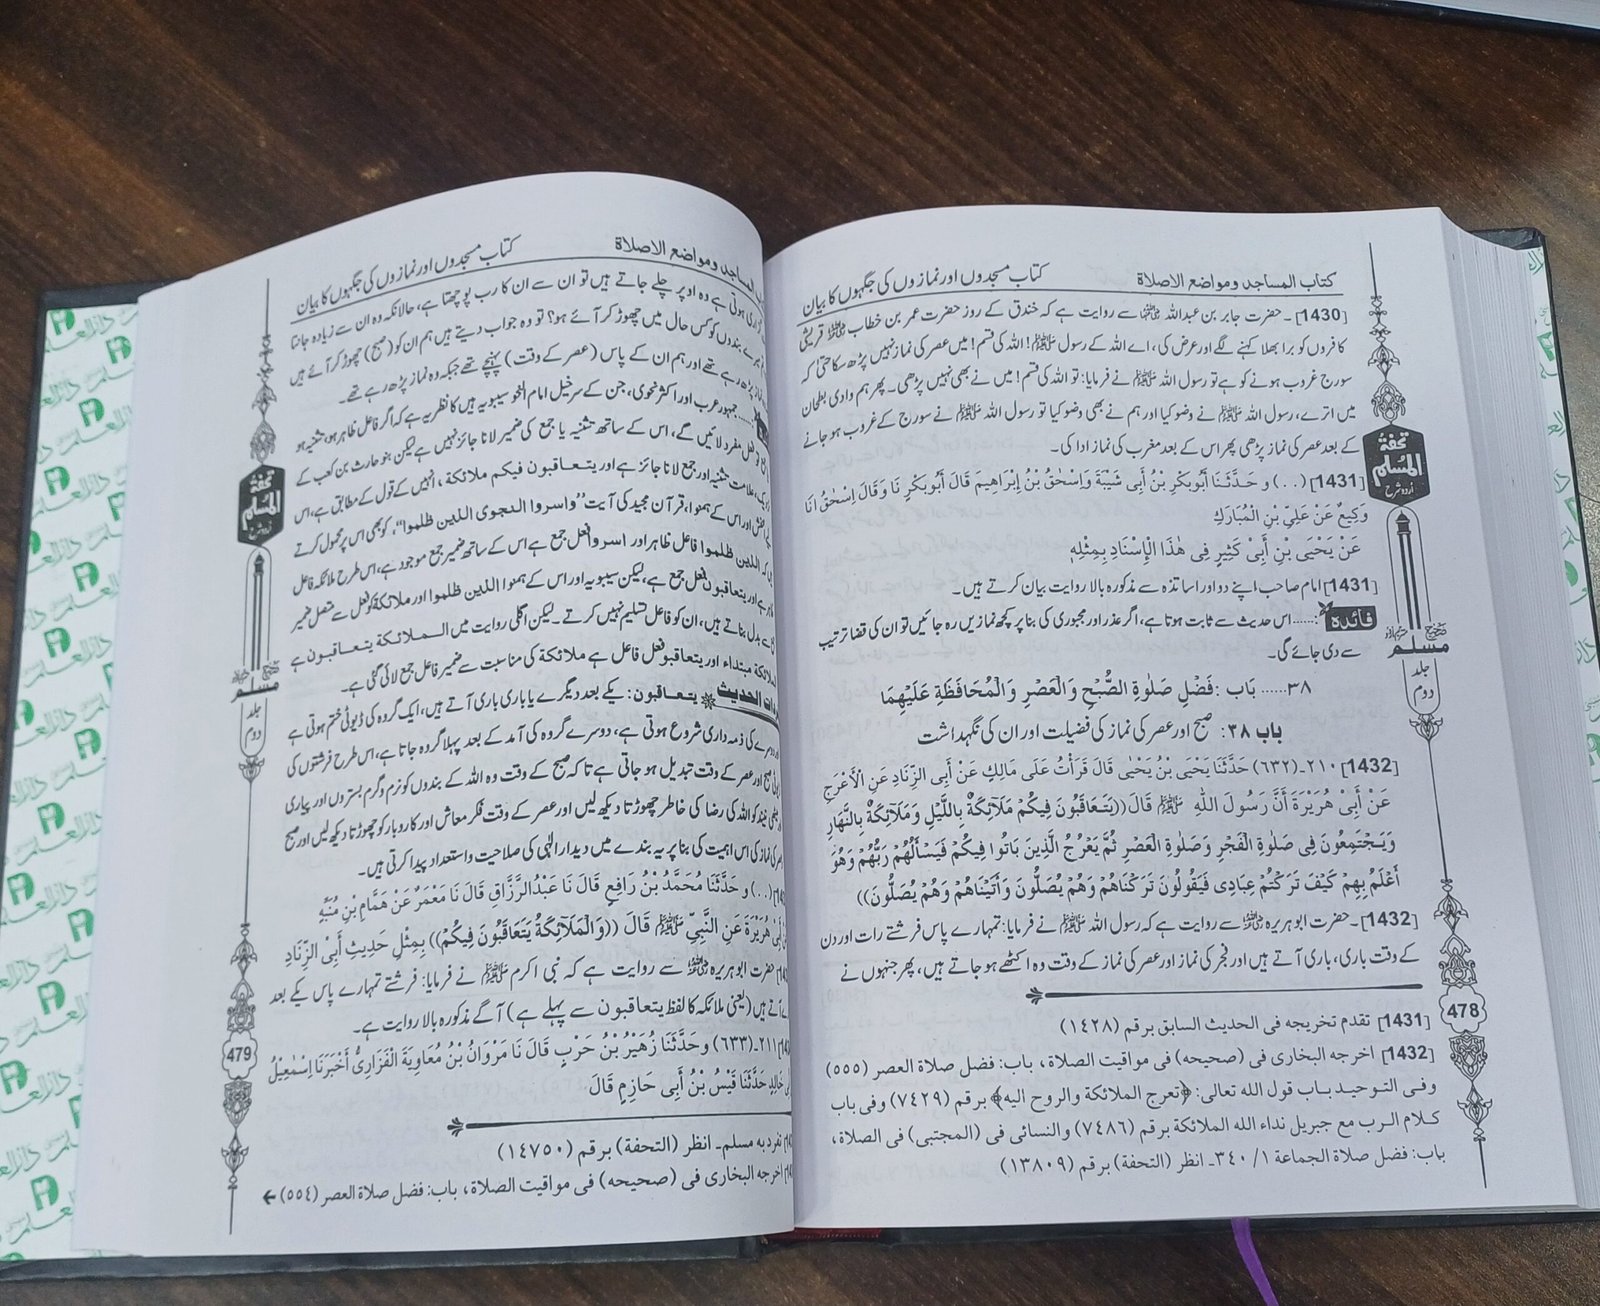 کتاب المساجد ومواضع الاصلاة
کتاب مسجدوں اور نمازوں کی جگہوں کا بیان
[1430]۔ حضرت جابر بن عبداللہ ﷜ سے روایت ہے کہ خندق کے روز حضرت عمر بن خطاب ﷜ قریشی
کافروں کو برا بھلا کہنے لگے اور عرض کی، اے اللہ کے رسول ﷺ! اللہ کی قسم! میں عصر کی نماز نہیں پڑھ سکا حتیٰ کہ
سورج غروب ہونے کو ہے تو رسول اللہ ﷺ نے فرمایا: تو اللہ کی قسم! میں نے بھی نہیں پڑھی۔ پھر ہم وادی بطحان
میں اترے، رسول اللہ ﷺ نے وضو کیا اور ہم نے بھی وضو کیا تو رسول اللہ ﷺ نے سورج کے غروب ہو جانے
کے بعد عصر کی نماز پڑھی پھر اس کے بعد مغرب کی نماز ادا کی۔
[1431] (. . .) و حَدَّثَنَا أَبُوبَكْرِ بْنُ أَبِى شَيْبَةَ وَإِسْحٰقُ بْنُ إِبْرَاهِيمَ قَالَ أَبُوبَكْرٍ نَا وَقَالَ إِسْحٰقُ انَا
وَكِيعٌ عَنْ عَلِيِّ بْنِ الْمُبَارَكِ
عَنْ يَحْيَى بْنِ أَبِىْ كَثِيرٍ فِى هٰذَا الْإِسْنَادِ بِمِثْلِهٖ
[1431] امام صاحب اپنے دو اور اساتذہ سے مذکورہ بالا روایت بیان کرتے ہیں۔
فائدہ :...... اس حدیث سے ثابت ہوتا ہے، اگر عذر اور مجبوری کی بنا پر کچھ نمازیں رہ جائیں تو ان کی قضا ترتیب
سے دی جائے گی۔
۳۸...... بَاب: فَضْلِ صَلٰوةِ الصُّبْحِ وَالْعَصْرِ وَالْمُحَافَظَةِ عَلَيْهِمَا
باب ۳۸: صبح اور عصر کی نماز کی فضیلت اور ان کی نگہداشت
[1432] ۲۱۰۔(۶۳۲) حَدَّثَنَا يَحْيَى بْنُ يَحْيٰى قَالَ قَرَأْتُ عَلَى مَالِكٍ عَنْ أَبِى الزِّنَادِ عَنِ الْأَعْرَجِ
عَنْ أَبِىْ هُرَيْرَةَ أَنَّ رَسُولَ اللهِ ﷺ قَالَ((يَتَعَاقَبُونَ فِيكُمْ مَلَآئِكَةٌ بِاللَّيْلِ وَمَلَآئِكَةٌ بِالنَّهَارِ
وَيَجْتَمِعُونَ فِى صَلٰوةِ الْفَجْرِ وَصَلٰوةِ الْعَصْرِ ثُمَّ يَعْرُجُ الَّذِينَ بَاتُوا فِيكُمْ فَيَسْأَلُهُمْ رَبُّهُمْ وَهُوَ
أَعْلَمُ بِهِمْ كَيْفَ تَرَكْتُمْ عِبَادِى فَيَقُولُونَ تَرَكْنَاهُمْ وَهُمْ يُصَلُّونَ وَأَتَيْنَاهُمْ وَهُمْ يُصَلُّونَ))
[1432]۔ حضرت ابوہریرہ ﷜ سے روایت ہے کہ رسول اللہ ﷺ نے فرمایا: تمہارے پاس فرشتے رات اور دن
کے وقت باری، باری آتے ہیں اور فجر کی نماز اور عصر کی نماز کے وقت وہ اکٹھے ہو جاتے ہیں، پھر جنہوں نے
[1431] تقدم تخریجه فى الحدیث السابق برقم (۱٤۲۸)
[1432] اخرجه البخارى فى (صحيحه) فى مواقيت الصلاة، باب: فضل صلاة العصر (۵۵۵)
وفى التوحید باب قول الله تعالى: ﴿تعرج الملائكة والروح اليه﴾ برقم (۷٤۲۹) وفى باب
كلام الرب مع جبريل نداء الله الملائكة برقم (۷٤۸٦) والنسائى فى (المجتبى) فى الصلاة،
باب: فضل صلاة الجماعة ۱/ ۲٤۰۔ انظر (التحفة) برقم (۱۳۸۰۹)
تحفة
المسلم
اردو شرح
صحیح
مسلم
جلد
دوم
478
المساجد ومواضع الاصلاة
کتاب مسجدوں اور نمازوں کی جگہوں کا بیان
گزاری ہوتی ہے وہ اوپر چلے جاتے ہیں تو ان سے ان کا رب پوچھتا ہے، حالانکہ وہ ان سے زیادہ جانتا
میرے بندوں کو کس حال میں چھوڑ کر آئے ہو؟ تو وہ جواب دیتے ہیں ہم ان کو (صبح) چھوڑ کر آئے ہیں
نماز پڑھ رہے تھے اور ہم ان کے پاس (عصر کے وقت) پہنچے تھے جبکہ وہ نماز پڑھ رہے تھے۔
...... جمہور عرب اور اکثر نحوی، جن کے سرخیل امام النحو سیبویہ ہیں کا نظریہ ہے کہ اگر فاعل ظاہر ہو، تثنیہ ہو
تو فعل مفرد لائیں گے، اس کے ساتھ تثنیہ یا جمع کی ضمیر لانا جائز نہیں ہے لیکن بنو حارث بن کعب کے
علامت تثنیہ اور جمع لانا جائز ہے اور یتعاقبون فیکم ملائکة، انہیں کے قول کے مطابق ہے، اس
اور اس کے ہمنوا، قرآن مجید کی آیت ”واسروا النجوی الذین ظلموا“، کو بھی اس پر محمول کرتے
کہ الذین ظلموا فاعل ظاہر اور اسروا فعل جمع ہے اس کے ساتھ ضمیر جمع موجود ہے، اس طرح ملائکہ فاعل
اور یتعاقبون فعل جمع ہے، لیکن سیبویہ اور اس کے ہمنوا الذین ظلموا اور ملائکة کو فعل سے متصل ضمیر
سے بدل بناتے ہیں، ان کو فاعل تسلیم نہیں کرتے۔ لیکن اگلی روایت میں الملائکة یتعاقبون ہے
ملائکة مبتداء اور یتعاقبو فعل فاعل ہے ملائکة کی مناسبت سے ضمیر فاعل جمع لائی گئی ہے۔
الحدیث ❋ یتعاقبون: یکے بعد دیگرے یا باری باری آتے ہیں، ایک گروہ کی ڈیوٹی ختم ہوتی ہے
دوسرے کی ذمہ داری شروع ہوتی ہے، دوسرے گروہ کی آمد کے بعد پہلا گروہ جاتا ہے، اس طرح فرشتوں کی
صبح اور عصر کے وقت تبدیل ہو جاتی ہے تاکہ صبح کے وقت وہ اللہ کے بندوں کو نرم و گرم بستروں اور پیاری
نیند کو اللہ کی رضا کی خاطر چھوڑتا دیکھ لیں اور عصر کے وقت فکر معاش اور کاروبار کو چھوڑتا دیکھ لیں اور صبح
کی نماز کی اس اہمیت کی بنا پر یہ بندے میں دیدار الٰہی کی صلاحیت و استعداد پیدا کرتی ہیں۔
(. . .) و حَدَّثَنَا مُحَمَّدُ بْنُ رَافِعٍ قَالَ نَا عَبْدُالرَّزَّاقِ قَالَ نَا مَعْمَرٌ عَنْ هَمَّامِ بْنِ مُنَبِّهٍ
أَبِى هُرَيْرَةَ عَنِ النَّبِيِّ ﷺ قَالَ ((وَالْمَلَآئِكَةُ يَتَعَاقَبُونَ فِيكُمْ)) بِمِثْلِ حَدِيثِ أَبِى الزِّنَادِ
حضرت ابوہریرہ ﷜ سے روایت ہے کہ نبی اکرم ﷺ نے فرمایا: فرشتے تمہارے پاس یکے بعد
آتے ہیں (یعنی ملائکہ کا لفظ یتعاقبون سے پہلے ہے) آگے مذکورہ بالا روایت ہے۔
۲۱۱۔(۶۳۳) و حَدَّثَنَا زُهَيْرُ بْنُ حَرْبٍ قَالَ نَا مَرْوَانُ بْنُ مُعَاوِيَةَ الْفَزَارِيُّ أَخْبَرَنَا إِسْمٰعِيلُ
خَالِدٍ حَدَّثَنَا قَيْسُ بْنُ أَبِى حَازِمٍ قَالَ
تفرد به مسلم۔ انظر (التحفة) برقم (۱٤۷۵۰)
اخرجه البخارى فى (صحيحه) فى مواقيت الصلاة، باب: فضل صلاة العصر (۵۵٤) ←
تحفة
المسلم
اردو شرح
صحیح
مسلم
جلد
دوم
479